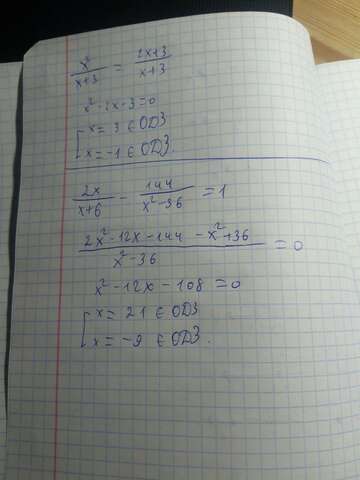 x²/(x+3) = (2x+3)/(x+3)
x²-2x-3=0
[x = 3 ∈ ОДЗ
[x = -1 ∈ ОДЗ.
2x/(x+6) - 144/(x²-36) = 1
(2x²-12x-144-x²+36)/(x²-36) = 0
x²-12x-108=0
[x = 21 ∈ ОДЗ
[x = -9 ∈ ОДЗ.